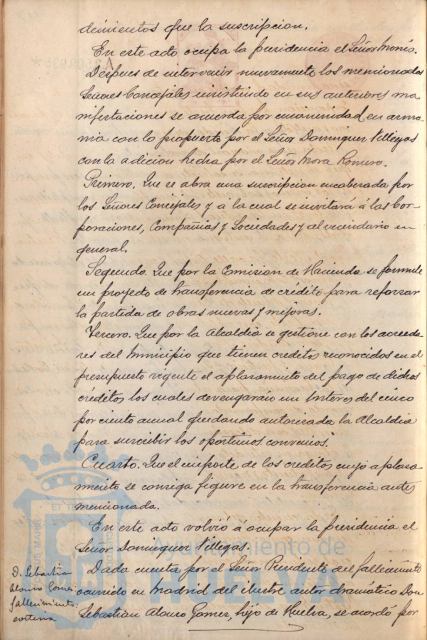 dimientos que la suscripcion.
En este acto ocupa la presidencia el Señor Monis.
Despues de intervenir nuevamente los mencionados
Señores Concejales insistiendo en sus anteriores ma
nifestaciones se acuerda por unanimidad en armo
nia con lo propuesto por el Señor Dominguez Villegas
con la adicion hecha por el Señor Mora Romero.
Primero. Que se abra una suscripcion encabezada por
los Señores Concejales y á la cual se invitará á las Cor
poraciones, Compañias y Sociedades y al vecindario en
general.
Segundo. Que por la Comision de Hacienda se formule
un proyecto de transferencia de crédito para reforzar
la partida de obras nuevas y mejoras.
Tercero. Que por la Alcaldia se gestione con los acreedo
res del Municipio que tienen creditos reconocidos en el
presupuesto vigente el aplazamiento del pago de dichos
créditos, los cuales devengarán un interes del cinco
por ciento anual quedando autorizada la Alcaldia
para suscribir los oportunos convenios.
Cuarto. Que el importe de los creditos cuyo aplaza-
miento se consiga figure en la transferencia antes
mencionada.
En este acto volvió á ocupar la presidencia el
Señor Dominguez Villegas.
D. Sebastian
Alonso Gomez
fallecimiento.
Dada cuenta por el Señor Presidente del fallecimiento
ocurrido en Madrid del ilustre autor dramático Don
Sebastian Alonso Gomez, hijo de Huelva, se acordó por
Ayuntamiento de
HUELVA